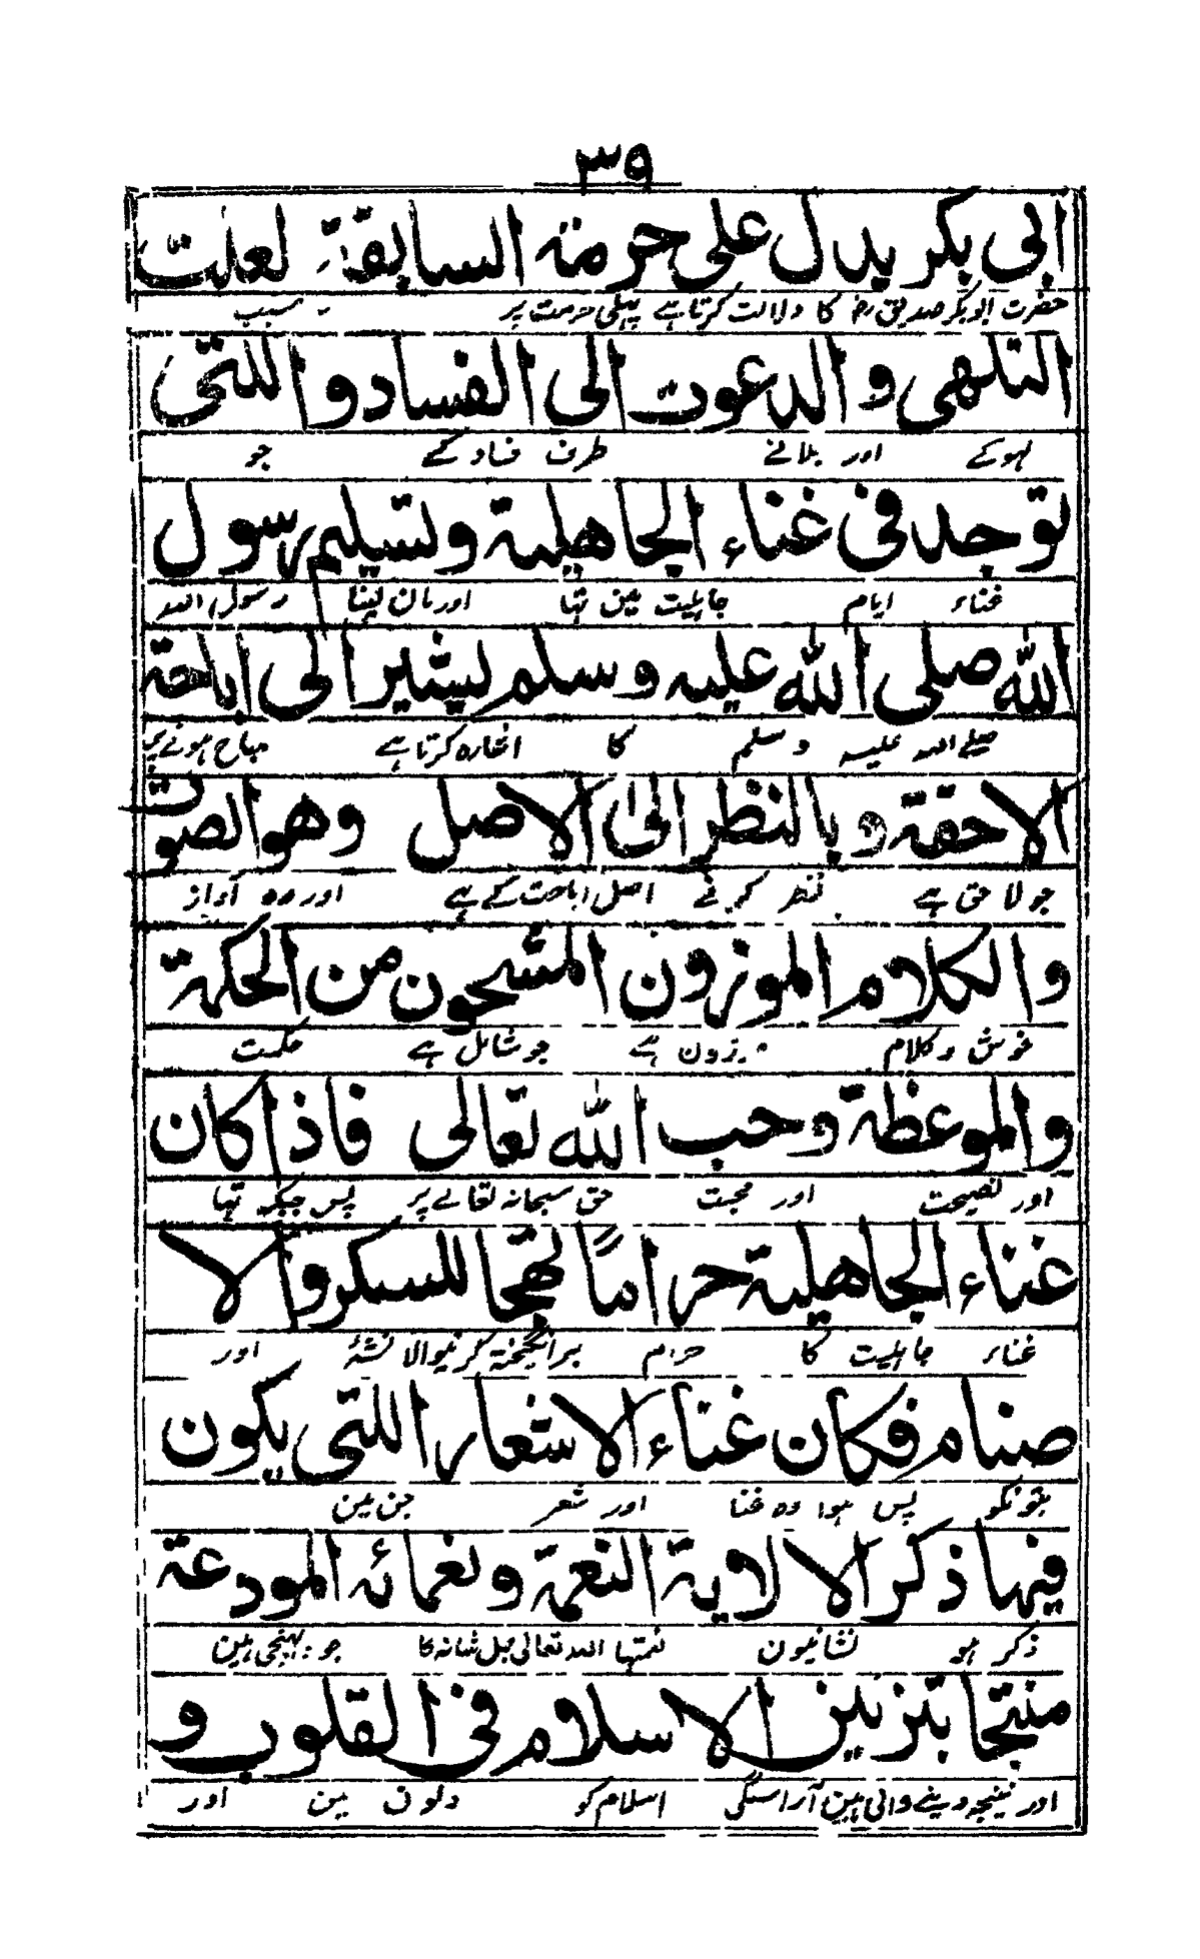 ٣٩
ابی بکر یدل علی حرمتہ السابقۃ لعلت
حضرت ابوبکر صدیق رضؓ کا دلالت کرتا ہے پہلی حرمت پر بسبب
التلھی والدعوت الی الفساد واللتی
لہوکے اور بلانے طرف فساد کے جو
توجد فی غناء الجاھلیۃ وتسلیم رسول
غناء ایام جاہلیت مین تہا اور مان لینا رسول اللہ
اللہ صلی اللہ علیہ وسلم یشیر الی اباحۃ
صلے اللہ علیہ وسلم کا اشارہ کرتا ہے مباح ہونے پر
الاحقۃ وبالنظر الی الاصل وھو الصوت
جو لاحق ہے نظر کرنے اصل اباحت کے ہے اور وہ آواز
والکلام الموزون المشحون من الحکمۃ
خوش وکلام موزون ہے جو شامل ہے حکمت
والموعظۃ وحب اللہ تعالی فاذا کان
اور نصیحت اور محبت حق سبحانہ تعالے پر پس جبکہ تہا
غناء الجاھلیۃ حراماً لھیجا للسکر والا
غناء جاہلیت کا حرام برانگیختہ کرنیوالا نشۂ اور
صنام فکان غناء الاشعار اللتی یکون
بتونکو پس ہوا وہ غنا اور شعر جن مین
فیھا ذکر الالایۃ النعمۃ ونعمائہ المودعۃ
ذکر ہو نشانیون نعمتہا اللہ تعالی جل شانہ کا جو پہنچی ہین
منتجا بتزئین الاسلام فی القلوب و
اور نتیجہ دینے والی ہین آراستگی اسلام کو دلون مین اور